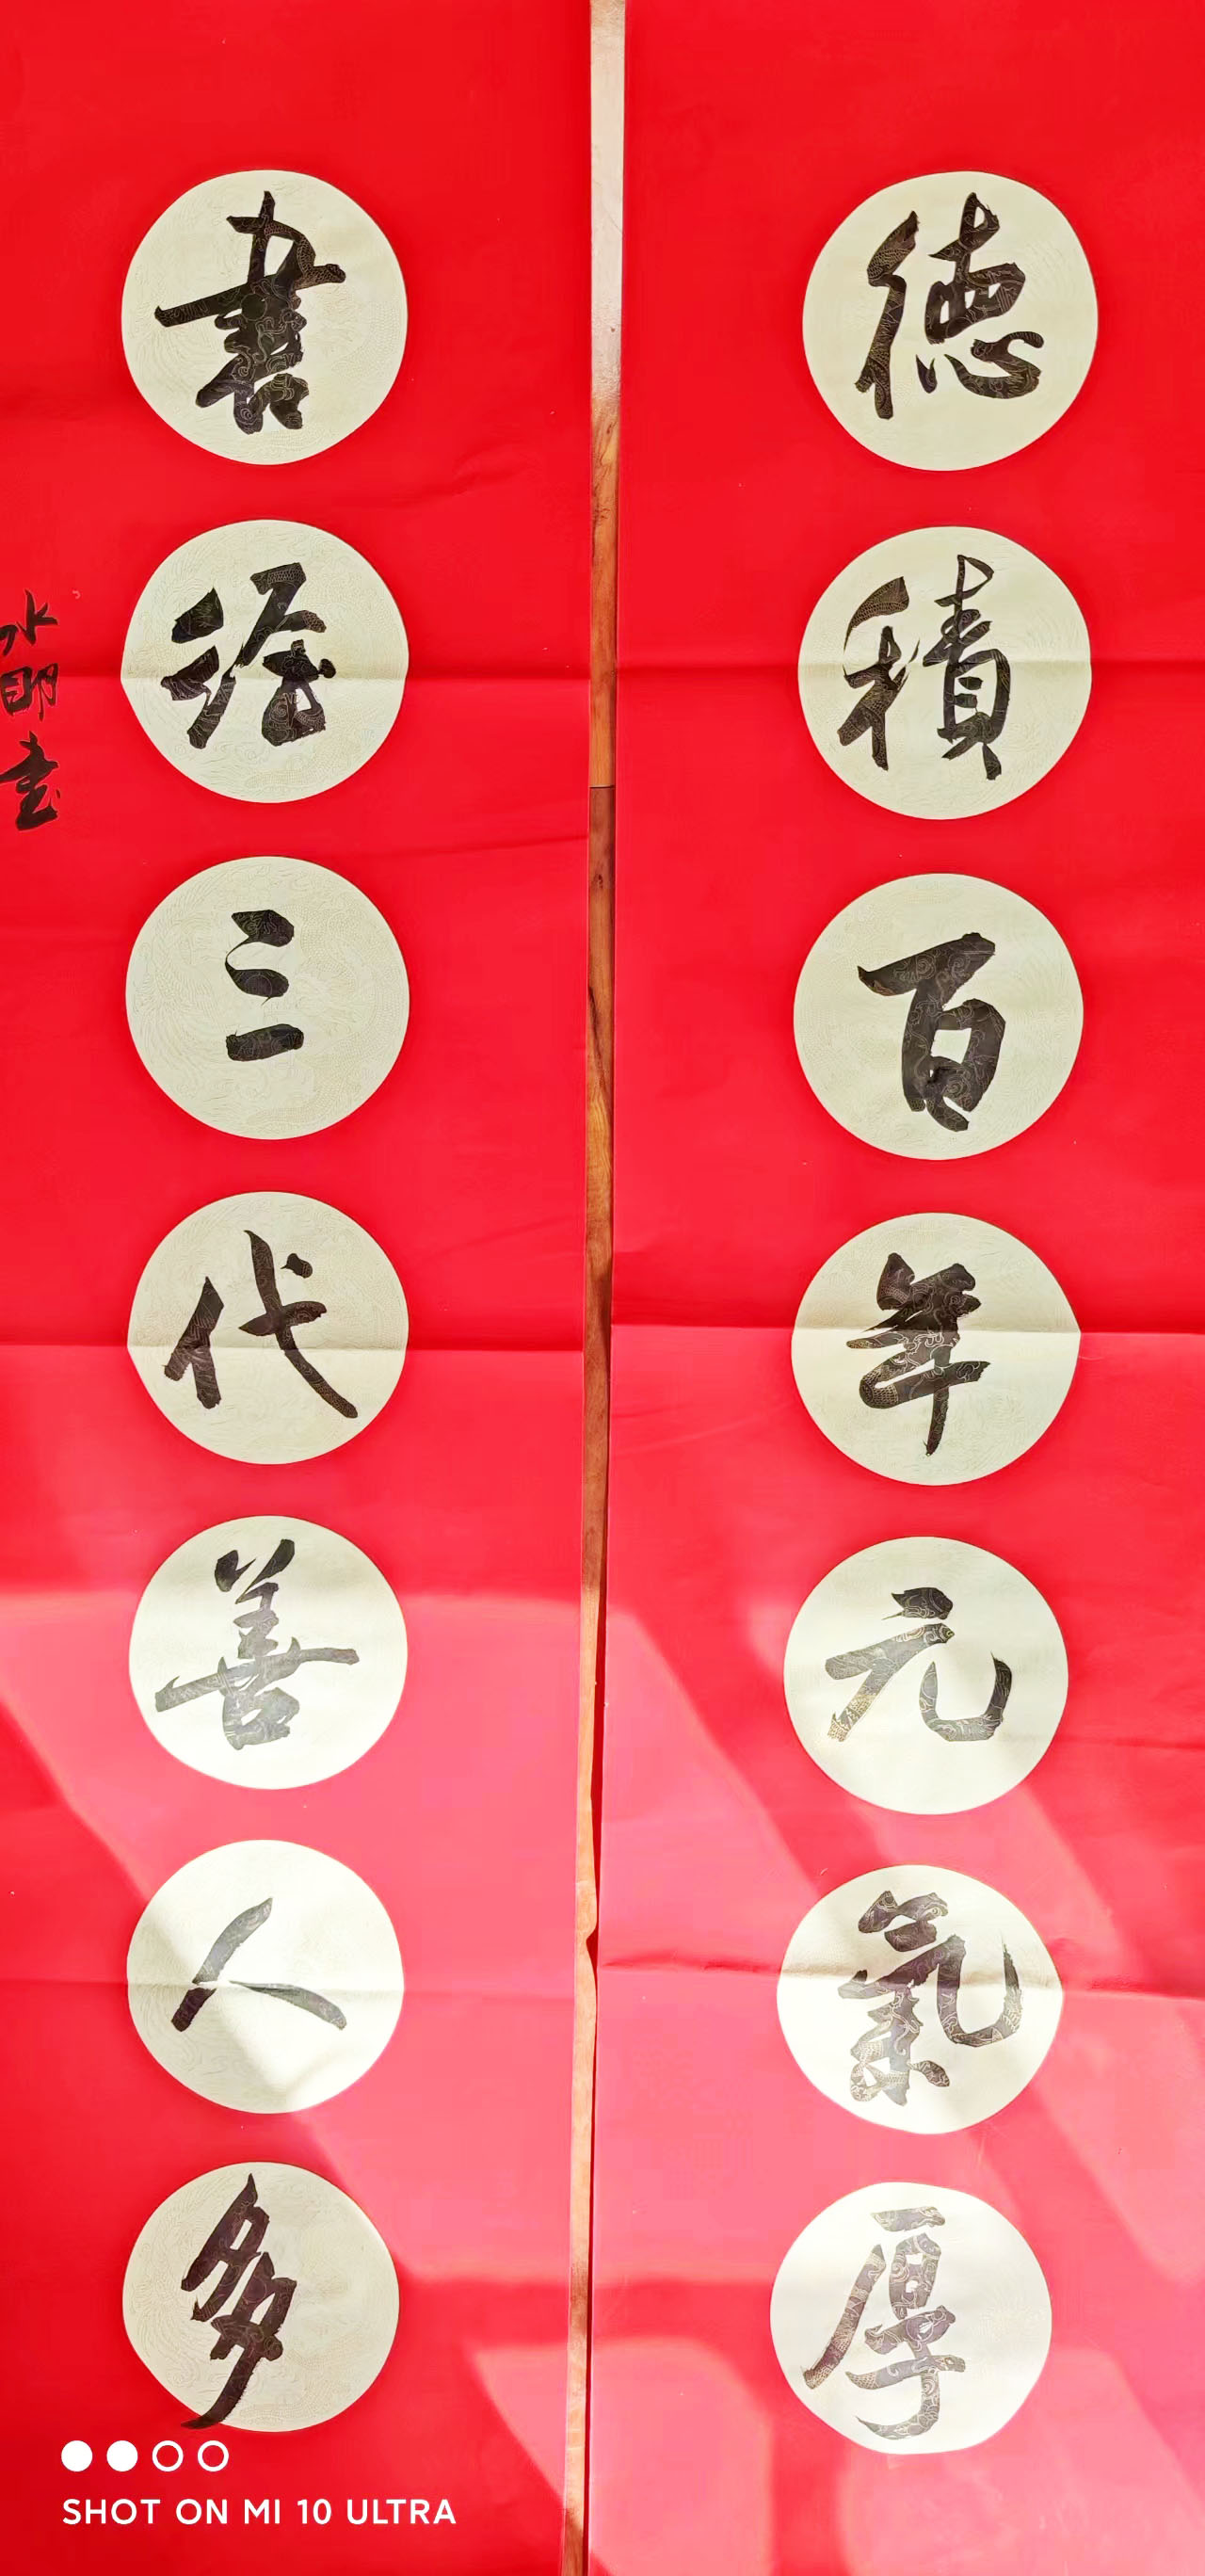 德積百年元氣厚
書經三代善人多
水明書
SHOT ON MI 10 ULTRA